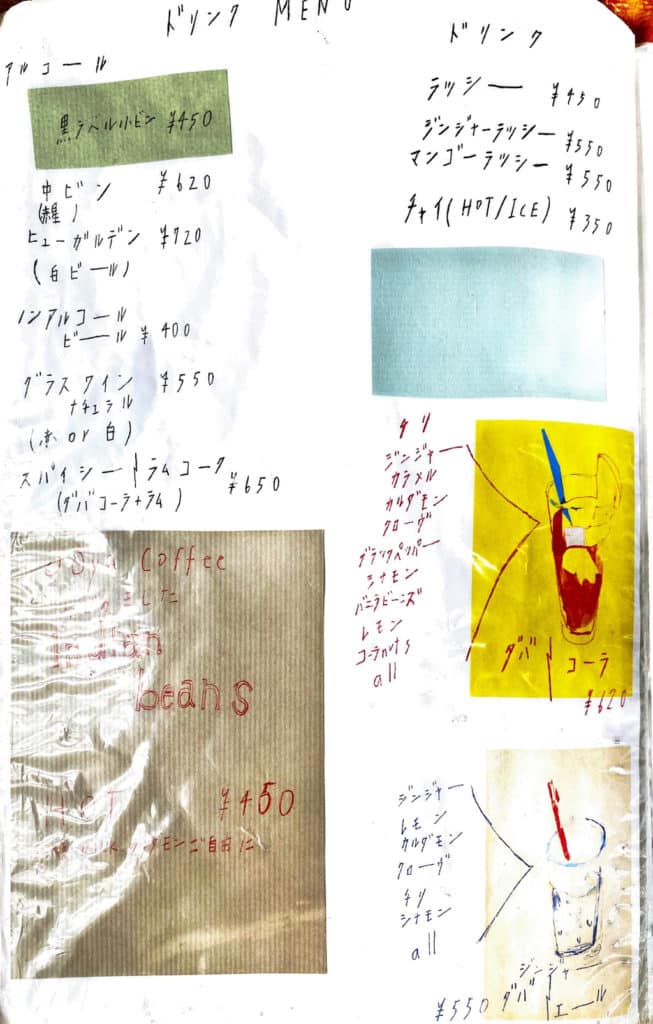 ドリンク MENU
アルコール
黒ラベル小ビン ¥450
中ビン ¥620
(赤星)
ヒューガルデン ¥720
(白ビール)
ノンアルコール
ビール ¥400
グラスワイン ¥550
ナチュラル
(赤 or 白)
スパイシーラムコーク ¥650
(ダバコーラ+ラム)
coffee
Indian
beans
HOT ¥450
ご自由に
ドリンク
ラッシー ¥450
ジンジャーラッシー ¥550
マンゴーラッシー ¥550
チャイ(HOT/ICE) ¥350
チリ
ジンジャー
カラメル
カルダモン
クローヴ
ブラックペッパー
シナモン
バニラビーンズ
レモン
コーラnuts
all
ダバコーラ
¥620
ジンジャー
レモン
カルダモン
クローヴ
チリ
シナモン
all
ジンジャー
¥550 ダバエール